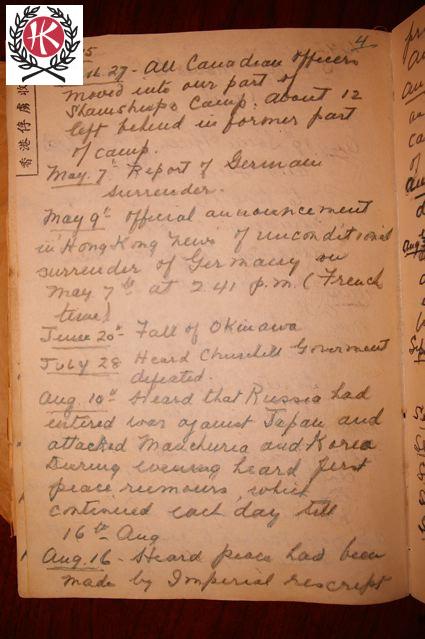 4
HK
45
27 - All Canadian officers
moved into our part of
Shamshuipo Camp. About 12
left behind in former part
of camp.
香港俘虜收
May. 7th Report of German
surrender.
May 9th official announcement
in Hong Kong News of unconditional
surrender of Germany on
May 7th at 2 41 p.m. (French
time)
June 20th - Fall of Okinawa
July 28 Heard Churchill Goverment
defeated.
Aug. 10th Heard that Russia had
entered war against Japan and
attacked Manchuria and Korea
During evening heard first
peace rumours, which
continued each day till
16th Aug
Aug. 16 - Heard peace had been
made by Imperial rescript